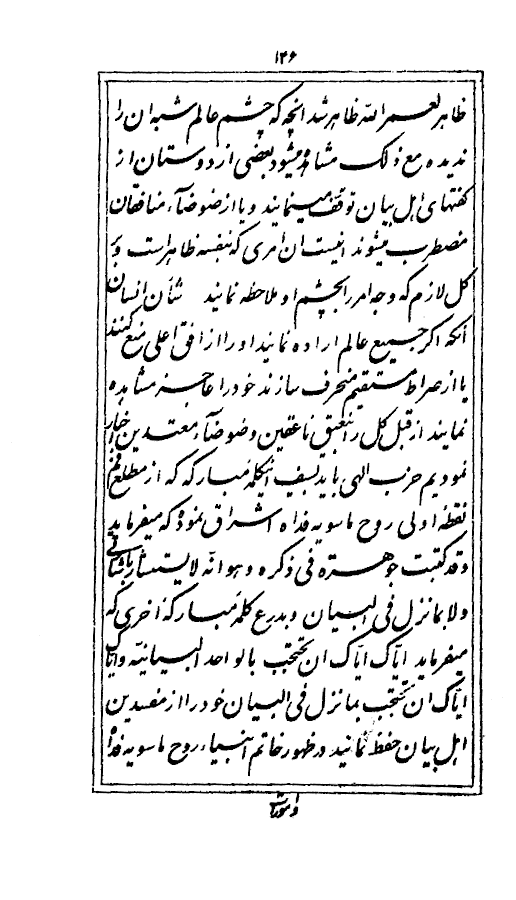 ١٢۶
ظاهر لعمر الله ظاهر شد انچه که چشم عالم شبه ان را
ندیده مع ذلک مشاهده میشود بعضی از دوستان از
گفتهای اهل بیان توقف مینمایند و یا از ضوضآء منافقان
مضطرب میشوند اینست ان امری که بنفسه ظاهر است و بر
کل لازم که وجه امر را بچشم او ملاحظه نمایند شأن انسان
آنکه اگر جمیع عالم اراده نمایند او را از افق اعلی منع کنند
یا از صراط مستقیم منحرف سازند خود را عاجز مشاهده
نمایند از قبل کل را بنعیق ناعقین و ضوضآء معتدین اخبار
نمودیم حزب الهی باید بسیف اینکلمهٔ مبارکه که از مطلع فم
نقطهٔ اولی روح ماسویه فداه اشراق نمود که میفرماید
و قد کتبت جوهرة فی ذکره و هو انّه لا یستشار باشارتی
و لا بما نزل فی البیان و بدرع کلمهٔ مبارکهٔ اخری که
میفرماید ایّاک ایّاک ان تحتجب بالواحد البیانیّه و ایّاک
ایّاک ان تحتجب بما نزل فی البیان خود را از مفسدین
اهل بیان حفظ نمایند در ظهور خاتم انبیاء روح ماسویه فداه